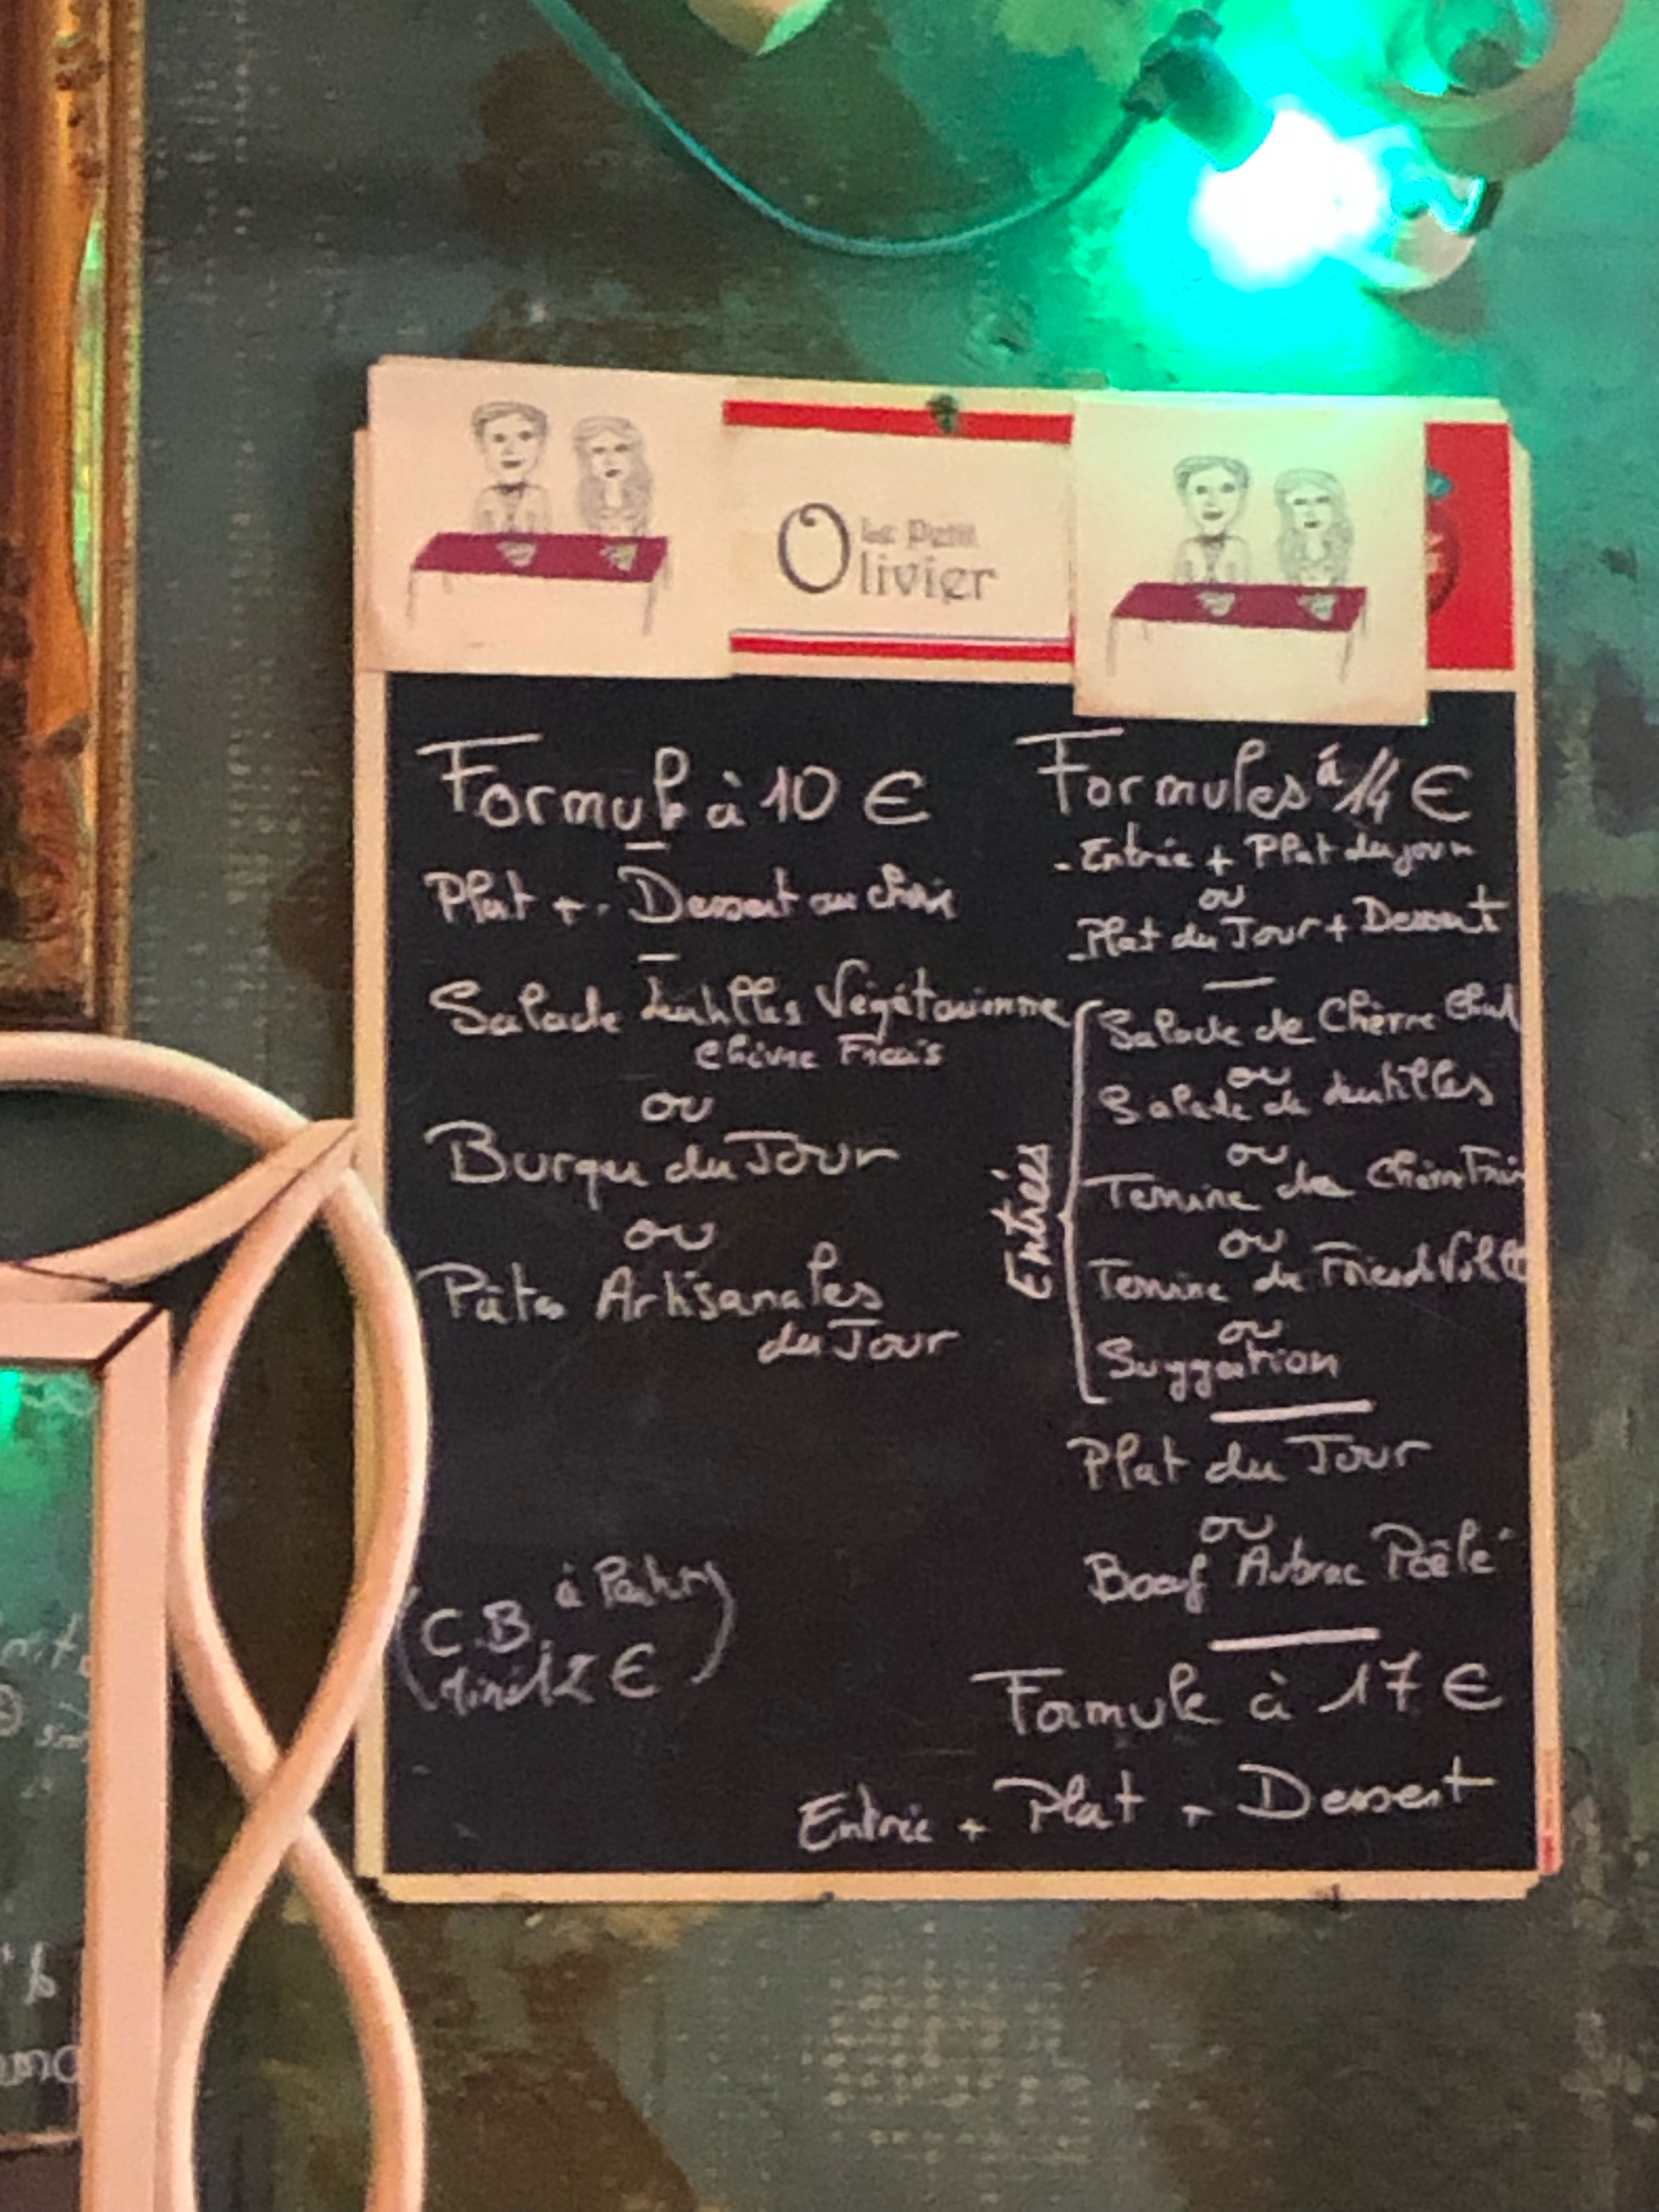 Le Petit
Olivier
Formule à 10 €
Plat + Dessert au choix
Salade Lentilles Végétarienne
Chèvre Frais
ou
Burger du Jour
ou
Pâtes Artisanales
du Jour
(C.B. à Partir)
Mini 12 €
Formules à 14 €
- Entrée + Plat du jour
ou
- Plat du Jour + Dessert
Entrées
Salade de Chèvre Chaud
ou
Salade de Lentilles
ou
Terrine de Chèvre Frais
ou
Terrine de
ou
Suggestion
Plat du Jour
ou
Boeuf Aubrac Poêlé
Formule à 17 €
Entrée + Plat + Dessert